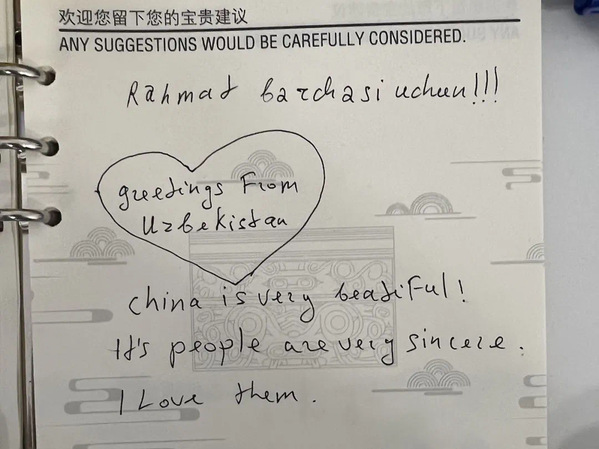 欢迎您留下您的宝贵建议
ANY SUGGESTIONS WOULD BE CAREFULLY CONSIDERED.
Rahmat barchasi uchun!!!
greetings From
Uzbekistan
China is very beatiful!
It's people are very sincere.
I Love them.